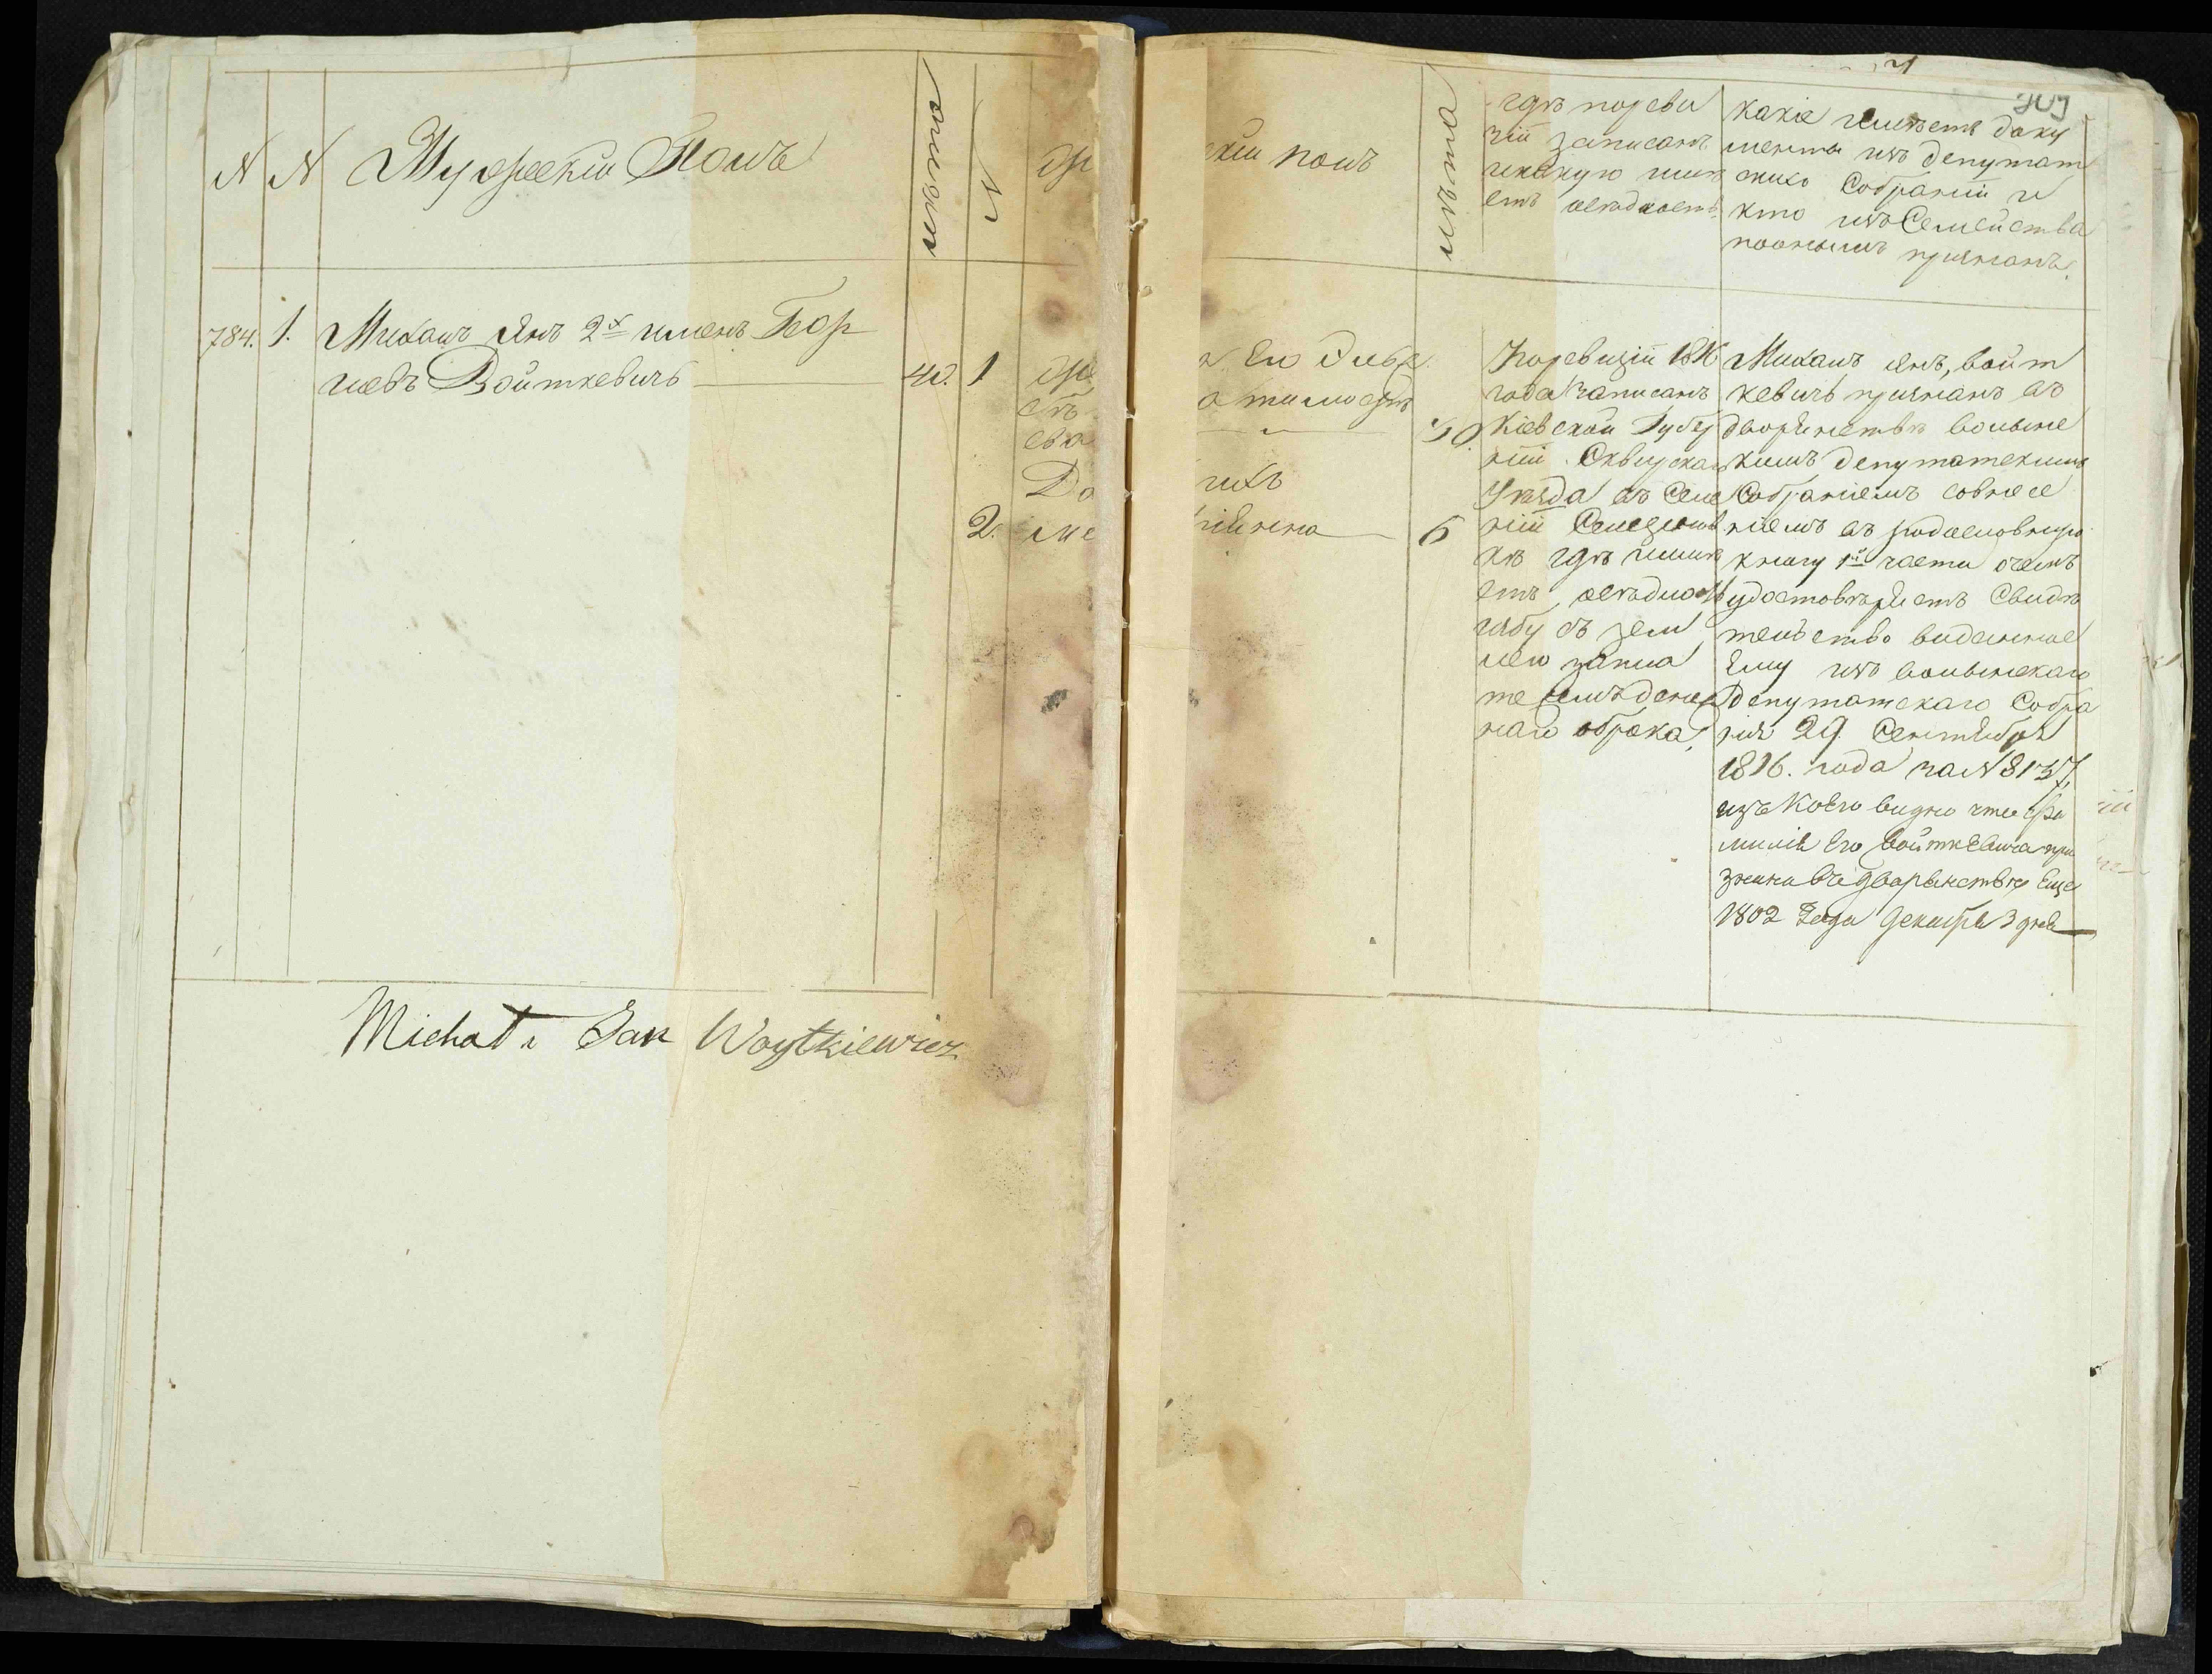 N N Мужески Полъ
лѣта
N
же
ский полъ
лѣта
гдѣ пореви
зіи записанъ
икакую имѣ
етъ оседлость
какіе имѣетъ доку
менты изъ депутат
скихъ Собраній и
кто изъ Семейства
поонымъ признанъ.
784. 1. Михаилъ Янъ 2х именъ
Войткевичъ
40. 1
Его
30
2.
6
Поревизіи 1816
года записанъ
Кіевской Губер
ніи Сквирскаго
Уезда въ Селе
ніи
гдѣ имѣ
етъ оседлость
избу съ зем
лею запла
темъ денеж
наго оброка.
Михаилъ Янъ, войт
кевичъ признанъ въ
дворянствѣ волынс
кимъ депутатскимъ
Собраніемъ совнесе
ніемъ въ родословную
книгу 1й части очемъ
удостовѣряетъ Свидѣ
тельство виданное
Ему изъ волынскаго
Депутатскаго Собра
нія 29 Сентября
1816. года за N 8137,
изъ коего видно что фа
милія Его Войткевича при
знана въ дворянствѣ Еще
1802 Года Декабря 3 дня
Michał i Jan Woytkiewicz